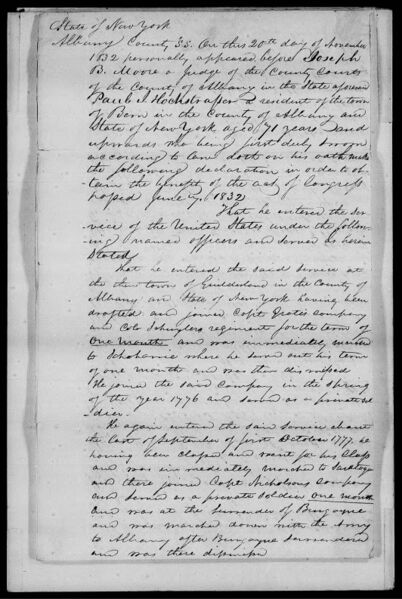 State of New York
Albany County S.S. On this 20th day of November
1832 personally appeared before Joseph
B. Moore a judge of the County Courts
of the County of Albany in the State aforesaid
Paul I Hochstrasser a resident of the town
of Bern in the County of Albany and
State of New York aged 71 years and
upwards who being first duly sworn
according to law doth on his oath make
the following declaration in order to ob-
tain the benefit of the act of Congress
passed June 7, 1832
That he entered the ser-
vice of the United States under the follow-
ing named officers and served as herein
Stated
That he entered the said service at
the town of Guilderland in the County of
Albany and State of New York having been
drafted and joined Capt company
and Col Schuylers regiment for the term of
one month and was immediately marched
to Schoharie where he served out his term
of one month and was then dismissed
He joined the said Company in the spring
of the year 1776 and served as a private sol-
dier.
He again entered the said service about
the last of September or first October 1777. he
having been classed and went for his class
and was immediately marched to Saratoga
and there joined Capt Nicholsons Company
and served as a private soldier one month
and was at the Surrender of Burgoyne
and was marched down with the Army
to Albany after Burgoyne surrendered
and was there dismissed